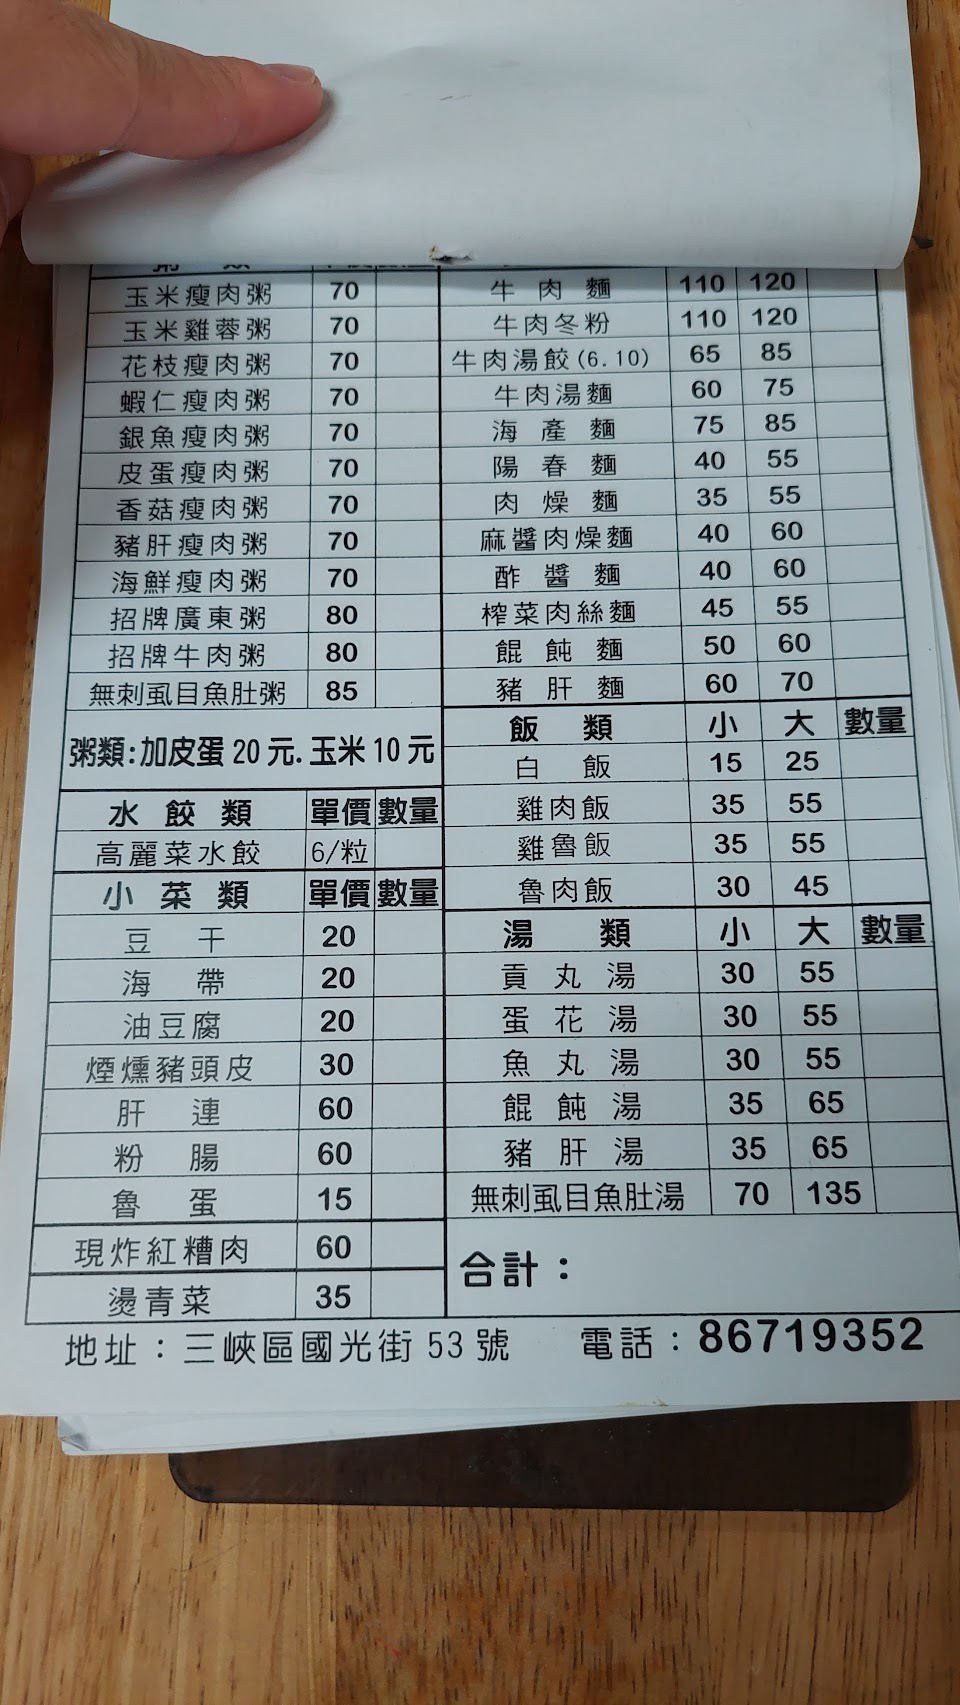 粥 類
玉米瘦肉粥 70
玉米雞蓉粥 70
花枝瘦肉粥 70
蝦仁瘦肉粥 70
銀魚瘦肉粥 70
皮蛋瘦肉粥 70
香菇瘦肉粥 70
豬肝瘦肉粥 70
海鮮瘦肉粥 70
招牌廣東粥 80
招牌牛肉粥 80
無刺虱目魚肚粥 85
粥類:加皮蛋20元.玉米10元
水餃類 單價 數量
高麗菜水餃 6/粒
小菜類 單價 數量
豆干 20
海帶 20
油豆腐 20
煙燻豬頭皮 30
肝連 60
粉腸 60
魯蛋 15
現炸紅糟肉 60
燙青菜 35
牛肉麵 110 120
牛肉冬粉 110 120
牛肉湯餃(6.10) 65 85
牛肉湯麵 60 75
海產麵 75 85
陽春麵 40 55
肉燥麵 35 55
麻醬肉燥麵 40 60
酢醬麵 40 60
榨菜肉絲麵 45 55
餛飩麵 50 60
豬肝麵 60 70
飯類 小 大 數量
白飯 15 25
雞肉飯 35 55
雞魯飯 35 55
魯肉飯 30 45
湯類 小 大 數量
貢丸湯 30 55
蛋花湯 30 55
魚丸湯 30 55
餛飩湯 35 65
豬肝湯 35 65
無刺虱目魚肚湯 70 135
合計：
地址：三峽區國光街53號 電話：86719352